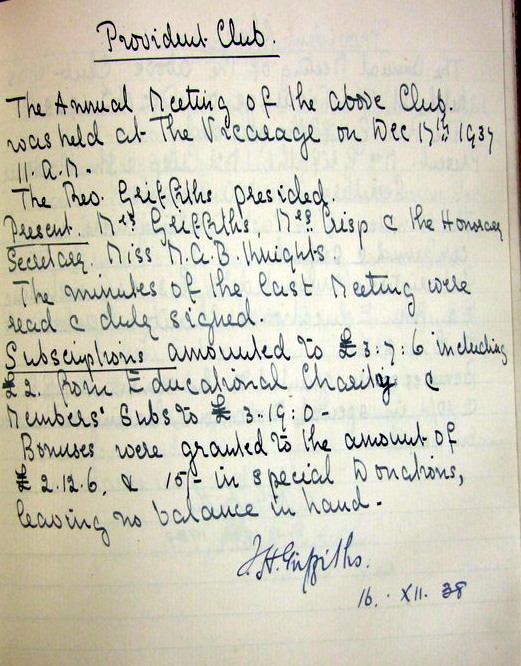 Provident Club.
The Annual Meeting of the above Club,
was held at The Vicarage on Dec 17th 1937
11 A.M.
The Rev. Griffiths presided.
Present. Mrs Griffiths. Mrs Crisp & the Honorary
Secretary. Miss M. A. B. Knights.
The minutes of the last Meeting were
read & duly signed.
Subscriptions amounted to £3:7:6 including
£2. from Educational Charity &
Members' Subs to £3:19:0.
Bonuses were granted to the amount of
£2.12.6. & 15/- in special Donations,
leaving no balance in hand.
J.H. Griffiths.
16. XII. 38